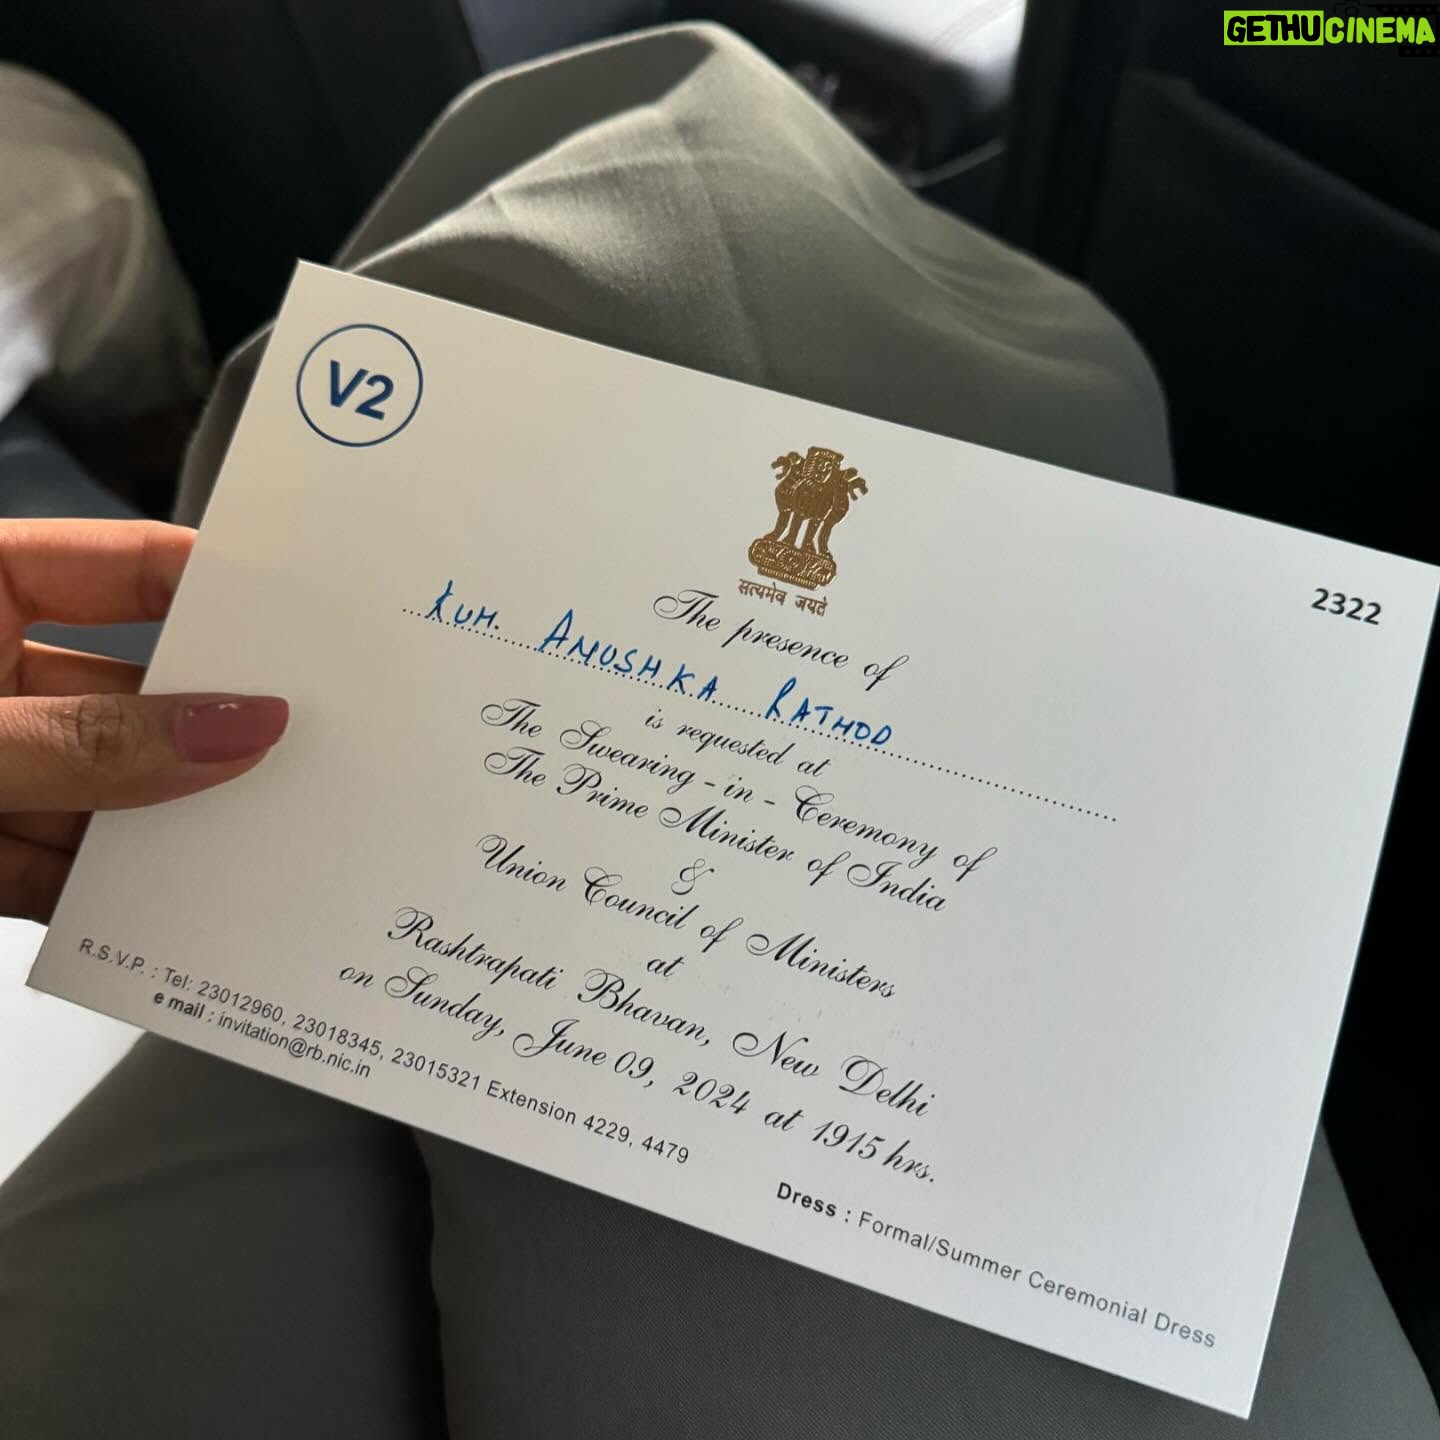 GETHUCINEMA
V2
2322
सत्यमेव जयते
The presence of
KUM. ANUSHKA RATHOD
is requested at
The Swearing - in - Ceremony of
The Prime Minister of India
&
Union Council of Ministers
at
Rashtrapati Bhavan, New Delhi
on Sunday, June 09, 2024 at 1915 hrs.
R.S.V.P. : Tel: 23012960, 23018345, 23015321 Extension 4229, 4479
e mail : invitation@rb.nic.in
Dress : Formal/Summer Ceremonial Dress